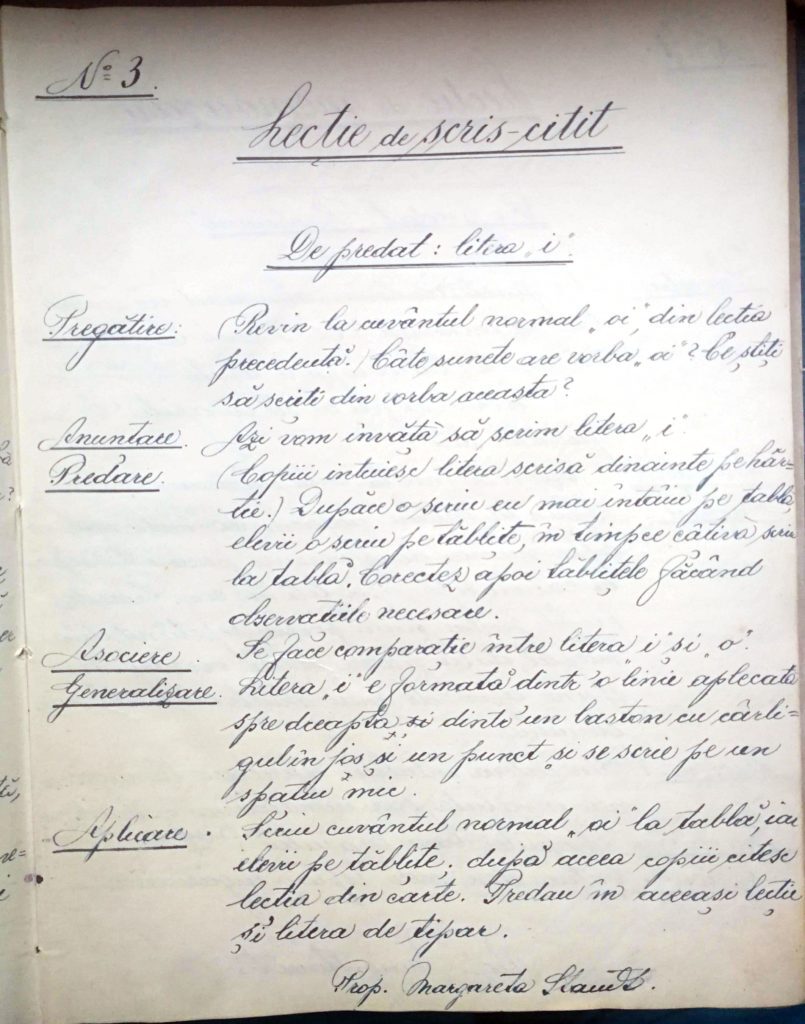 No 3.
Lecție de scris-citit
De predat: litera „i".
Pregătire: (Revin la cuvântul normal „oi", din lecția
precedentă.) Câte sunete are vorba „oi"? Ce știți
să scrieți din vorba aceasta?
Anunțare. Azi vom învăța să scrim litera „i".
Predare. (Copiii intuiesc litera scrisă dinainte pe hâr=
tie.) Dupăce o scriu eu mai întâiu pe tablă,
elevii o scriu pe tăblițe, în timpce câtiva scriu
la tablă. Corectez apoi tăblițele făcând
observațiile necesare.
Asociere. Se face comparație între litera i" și „o".
Generalizare. Litera „i" e formată dintr'o linie aplecată
spre dreapta și dintr'un baston cu cârli=
gul în jos și un punct și se scrie pe un
spațiu mic.
Aplicare. Scriu cuvântul normal „oi" la tablă, iar
elevii pe tăblițe, după aceea copiii citesc
lecția din carte. Predau în aceeași lecție
și litera de tipar.
Prop. Margareta